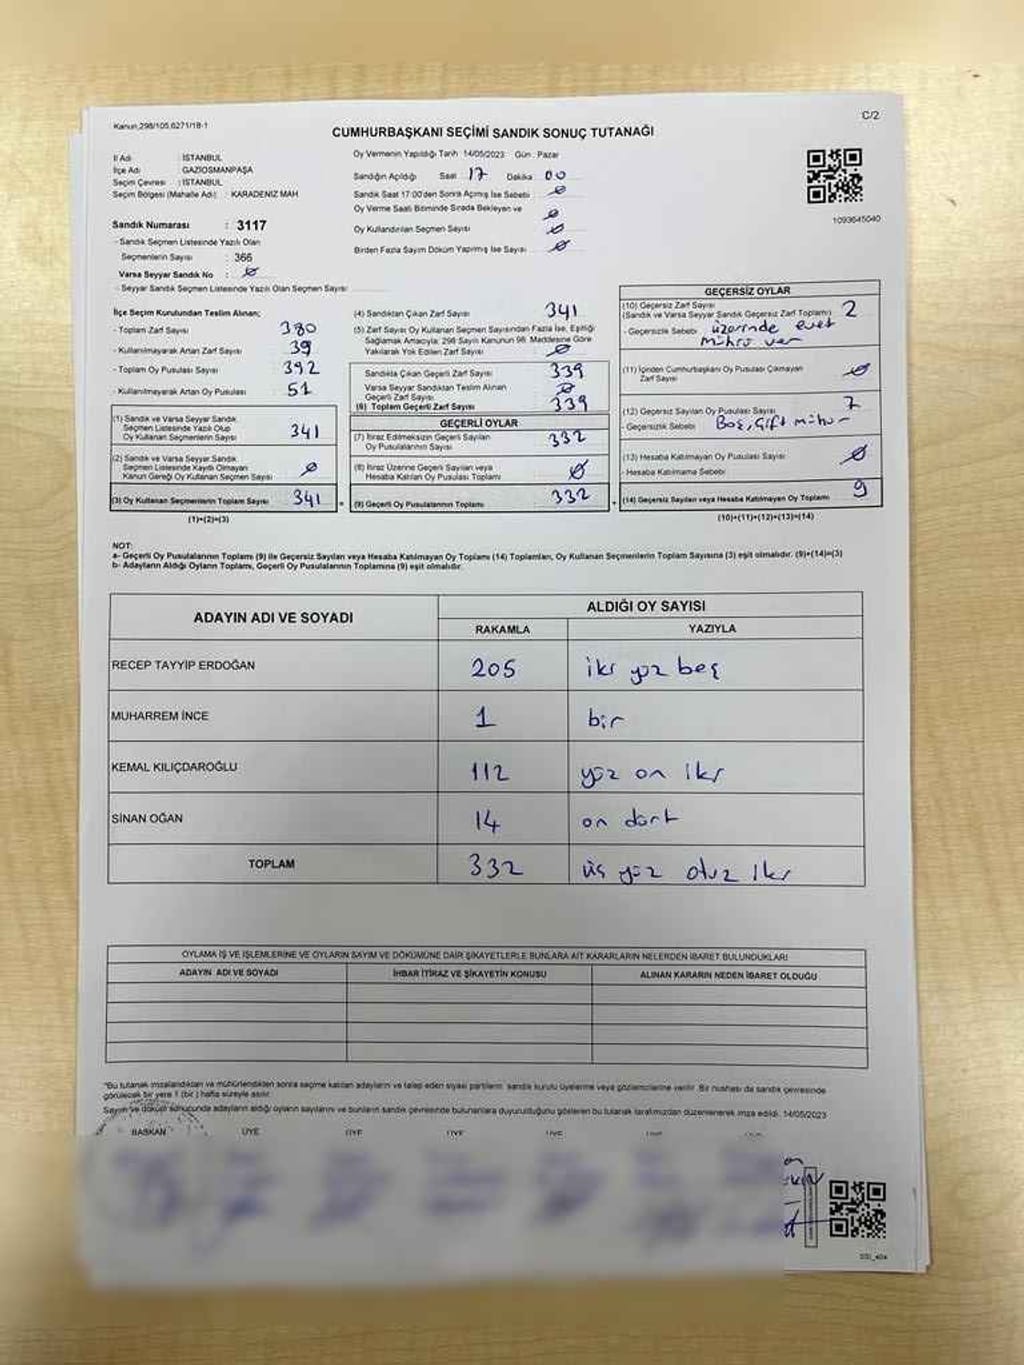 Kanun,298/105,6271/18-1
C/2
CUMHURBAŞKANI SEÇİMİ SANDIK SONUÇ TUTANAĞI
İl Adı : İSTANBUL
İlçe Adı : GAZİOSMANPAŞA
Seçim Çevresi : İSTANBUL
Seçim Bölgesi (Mahalle Adı) : KARADENİZ MAH
Sandık Numarası : 3117
- Sandık Seçmen Listesinde Yazılı Olan
Seçmenlerin Sayısı : 366
Varsa Seyyar Sandık No : Ø
- Seyyar Sandık Seçmen Listesinde Yazılı Olan Seçmen Sayısı :
Oy Vermenin Yapıldığı Tarih 14/05/2023 Gün Pazar
Sandığın Açıldığı Saat 17 Dakika 00
Sandık Saat 17:00'den Sonra Açılmış İse Sebebi Ø
Oy Verme Saati Bitiminde Sırada Bekleyen ve Ø
Oy Kullandırılan Seçmen Sayısı Ø
Birden Fazla Sayım Döküm Yapılmış İse Sayısı Ø
1093645040
İlçe Seçim Kurulundan Teslim Alınan;
- Toplam Zarf Sayısı 380
- Kullanılmayarak Artan Zarf Sayısı 39
- Toplam Oy Pusulası Sayısı 392
- Kullanılmayarak Artan Oy Pusulası 51
(1) Sandık ve Varsa Seyyar Sandık
Seçmen Listesinde Yazılı Olup
Oy Kullanan Seçmenlerin Sayısı 341
(2) Sandık ve Varsa Seyyar Sandık
Seçmen Listesinde Kayıtlı Olmayan
Kanun Gereği Oy Kullanan Seçmen Sayısı Ø
(3) Oy Kullanan Seçmenlerin Toplam Sayısı 341
(1)+(2)=(3)
(4) Sandıktan Çıkan Zarf Sayısı 341
(5) Zarf Sayısı Oy Kullanan Seçmen Sayısından Fazla İse, Eşitliği
Sağlamak Amacıyla; 298 Sayılı Kanunun 98. Maddesine Göre
Yakılarak Yok Edilen Zarf Sayısı Ø
Sandıkta Çıkan Geçerli Zarf Sayısı 339
Varsa Seyyar Sandıktan Teslim Alınan
Geçerli Zarf Sayısı Ø
(6) Toplam Geçerli Zarf Sayısı 339
GEÇERLİ OYLAR
(7) İtiraz Edilmeksizin Geçerli Sayılan
Oy Pusulası Toplamı 332
(8) İtiraz Üzerine Geçerli Sayılan veya
Hesaba Katılan Oy Pusulası Toplamı Ø
(9) Geçerli Oy Pusulalarının Toplamı 332
GEÇERSİZ OYLAR
(10) Geçersiz Zarf Sayısı
(Sandık ve Varsa Seyyar Sandık Geçersiz Zarf Toplamı) 2
- Geçersizlik Sebebi : üzerinde evet
mührü var
(11) İçinden Cumhurbaşkanı Oy Pusulası Çıkmayan
Zarf Sayısı Ø
(12) Geçersiz Sayılan Oy Pusulası Sayısı 7
- Geçersizlik Sebebi Boş, çift mühür
(13) Hesaba Katılmayan Oy Pusulası Sayısı Ø
- Hesaba Katılmama Sebebi
(14) Geçersiz Sayılan veya Hesaba Katılmayan Oy Toplamı 9
(10)+(11)+(12)+(13)=(14)
NOT:
a- Geçerli Oy Pusulalarının Toplamı (9) ile Geçersiz Sayılan veya Hesaba Katılmayan Oy Toplamı (14) Toplamları, Oy Kullanan Seçmenlerin Toplam Sayısına (3) eşit olmalıdır. (9)+(14)=(3)
b- Adayların Aldığı Oyların Toplamı, Geçerli Oy Pusulalarının Toplamına (9) eşit olmalıdır.
ADAYIN ADI VE SOYADI
ALDIĞI OY SAYISI
RAKAMLA YAZIYLA
RECEP TAYYİP ERDOĞAN 205 iki yüz beş
MUHARREM İNCE 1 bir
KEMAL KILIÇDAROĞLU 112 yüz on iki
SİNAN OĞAN 14 on dört
TOPLAM 332 üç yüz otuz iki
OYLAMA İŞ VE İŞLEMLERİNE VE OYLARIN SAYIM VE DÖKÜMÜNE DAİR ŞİKAYETLERLE BUNLARA AİT KARARLARIN NELERDEN İBARET BULUNDUKLARI
ADAYIN ADI VE SOYADI İHBAR İTİRAZ VE ŞİKAYETİN KONUSU ALINAN KARARIN NEDEN İBARET OLDUĞU
"Bu tutanak imzalandıktan ve mühürlendikten sonra seçime katılan adayların ve talep eden siyasi partilerin sandık kurulu üyelerine veya gözlemcilerine verilir. Bir nüshası da sandık çevresinde
görülecek bir yere 1 (bir) hafta süreyle asılır.
Sayım ve döküm sonucunda adayların aldığı oyların sayılarını ve bunların sandık çevresinde bulunanlara duyurulduğunu gösteren bu tutanak tarafımızdan düzenlenerek imza edildi. 14/05/2023
BAŞKAN ÜYE ÜYE ÜYE ÜYE